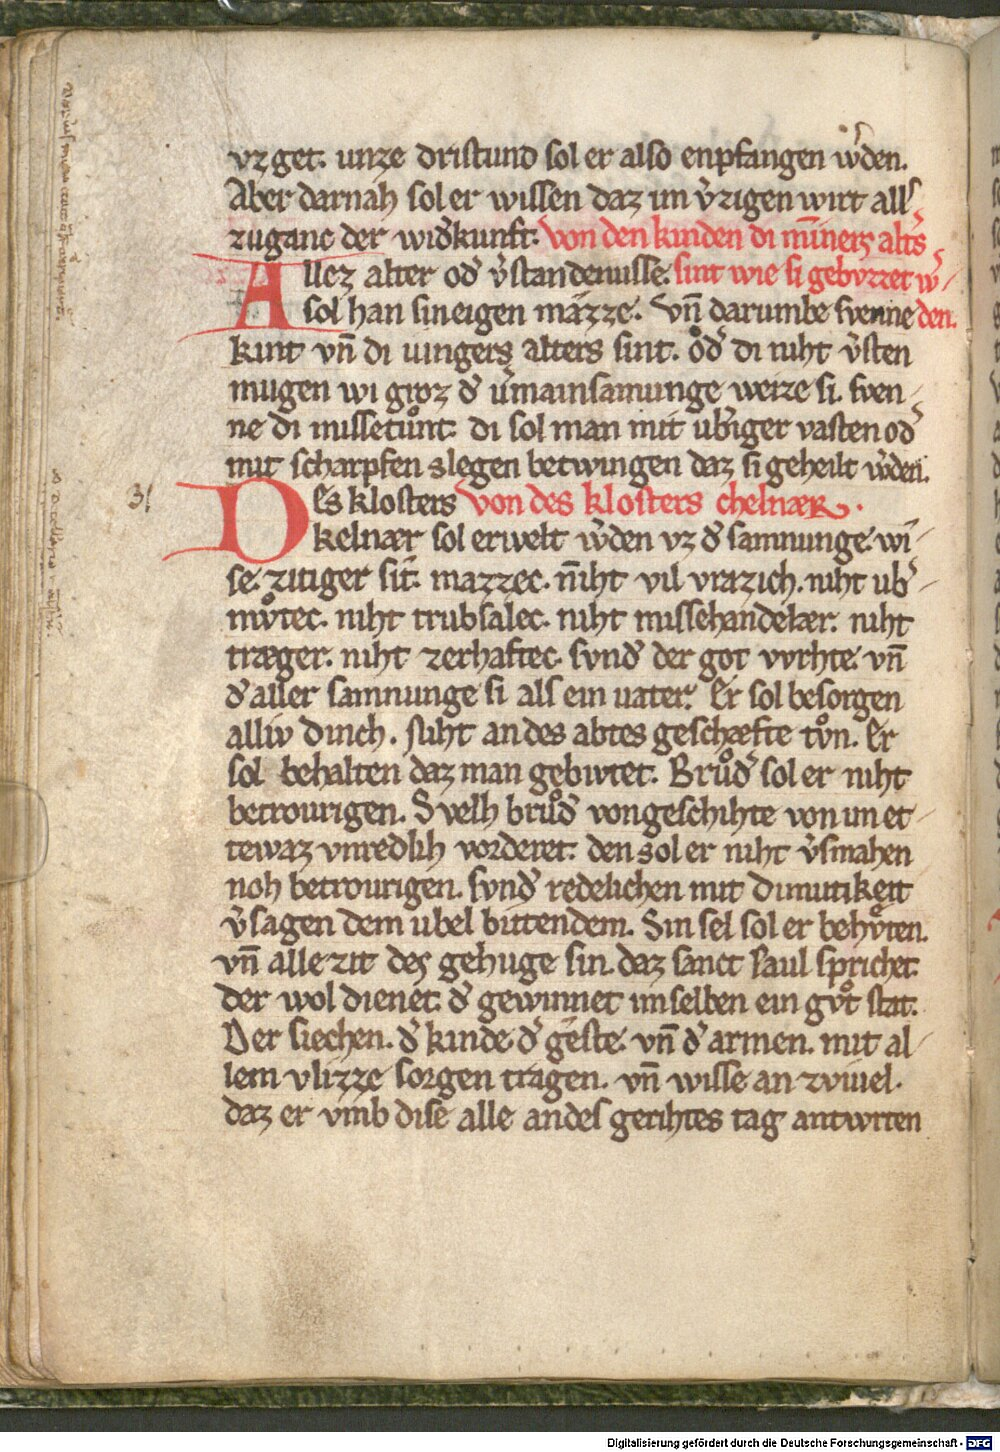 vz get. unze dristund sol er also enpfangen w̓den.
Aber darnah sol er wissen daz im v̓zigen wirt all'
zuganc der wid̓kunft. von den kinden di mīnerz alt̓s
Allez alter od̓ v̓standenusse. sint wie si gebvrret w̓
sol han sin eigen mazze. Vn̄ darumbe svenne den.
kint vn̄ di iungers alters sint. od̓ di niht v̓sten
mugen wi groz d̓ v̓mainsamunge weize si. sven
ne di missetuͦnt. di sol man mit ub̓iger vasten od̓
mit scharpfen slegen betwingen daz si geheilt w̓den.
31 Des klosters von des klosters chelnær.
kelnær sol erwelt w̓den vz d̓ samnunge. wi
se. zitiger sit̓. mazzec. niht vil vrazich. niht ub̓
mvͦtec. niht trubsalec. niht missehandelær. niht
træger. niht zerhaftec. svnd̓ der got vvrhte. vn̄
d̓ aller samnunge si als ein uater. Er sol besorgen
alliv dinch. Niht an des abtes geschæfte tvͦn. Er
sol behalten daz man gebivtet. Bruͦd̓ sol er niht
betrourigen. Svelh bruͦd̓ von geschihte von im et
tewaz vnredlih vorderet. den sol er niht v̓smahen
noh betrourigen. svnd̓ redelichen mit dimutikeit
v̓sagen dem ubel bittendem. Sin sel sol er behvͦten.
vn̄ alle zit des gehuge sin. daz sanct Paul sprichet.
der wol dienet. d̓ gewinnet im selben ein gvͦt stat.
Der siechen. d̓ kinde. d̓ geste. vn̄ d̓ armen. mit al
lem vlizze sorgen tragen. vn̄ wisse an zviuel.
daz er vmb dise alle an des gerihtes tag antwrten
Digitalisierung gefördert durch die Deutsche Forschungsgemeinschaft - DFG